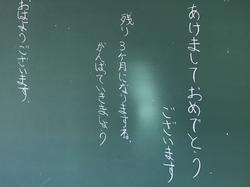 あけましておめでとう
ございます
残り3ケ月になりますね。
がんばっていきましょう
おはようございます。